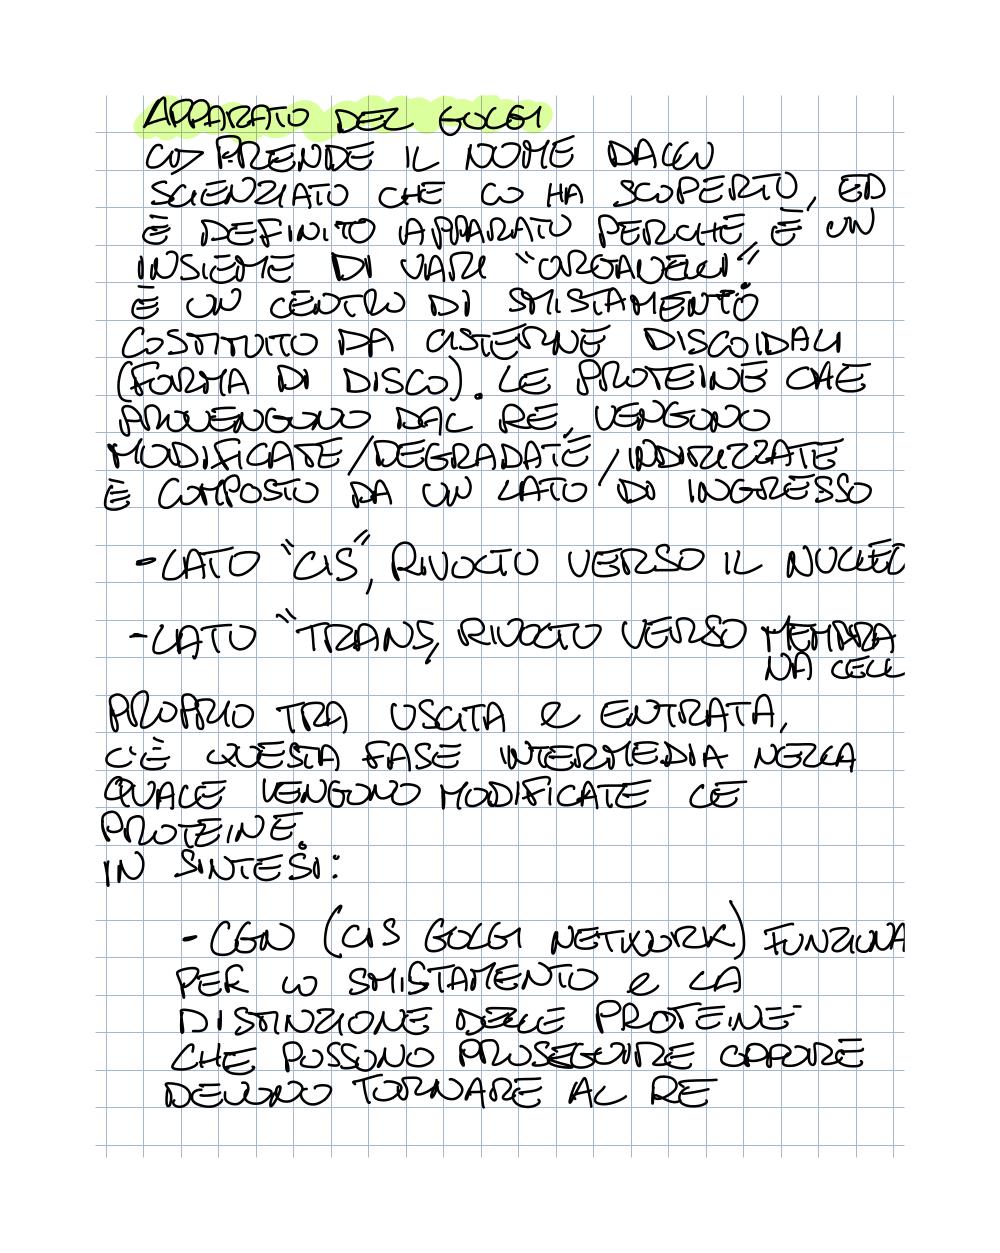 APPARATO DEL GOLGI
PRENDE IL NOME DALLO
SCIENZIATO CHE LO HA SCOPERTO, ED
È DEFINITO APPARATO PERCHÈ È UN
INSIEME DI VARI "ORGANELLI"
È UN CENTRO DI SMISTAMENTO
COSTITUITO DA CISTERNE DISCOIDALI
(FORMA DI DISCO). LE PROTEINE CHE
PROVENGONO DAL RE, VENGONO
MODIFICATE/DEGRADATE/INDIRIZZATE
È COMPOSTO DA UN LATO DI INGRESSO
- LATO "CIS", RIVOLTO VERSO IL NUCLEO
- LATO "TRANS, RIVOLTO VERSO MEMBRA
NA CELL
PROPRIO TRA USCITA e ENTRATA,
C'È QUESTA FASE INTERMEDIA NELLA
QUALE VENGONO MODIFICATE LE
PROTEINE.
IN SINTESI:
- CGN (CIS GOLGI NETWORK) FUNZIONA
PER LO SMISTAMENTO e LA
DISTINZIONE DELLE PROTEINE
CHE POSSONO PROSEGUIRE OPPURE
DEVONO TORNARE AL RE